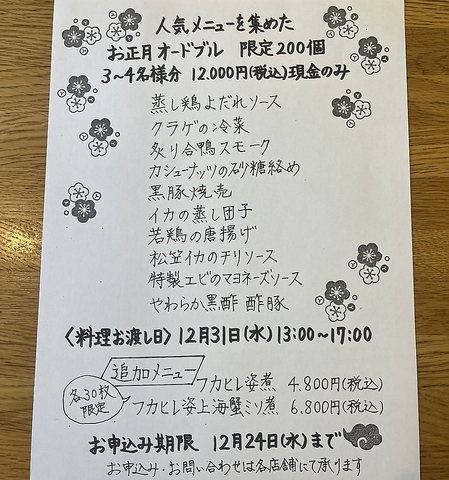 人気メニューを集めた
お正月オードブル 限定200個
3~4名様分 12.000円(税込)現金のみ
蒸し鶏よだれソース
クラゲの冷菜
炙り合鴨スモーク
カシューナッツの砂糖絡め
黒豚焼売
イカの蒸し団子
若鶏の唐揚げ
松笠イカのチリソース
特製エビのマヨネーズソース
やわらか黒酢 酢豚
〈料理お渡し日〉12月31日(水)13:00~17:00
追加メニュー
各30枚限定
フカヒレ姿煮 4.800円(税込)
フカヒレ姿上海蟹ミソ煮 6.800円(税込)
お申込み期限 12月24日(水)まで
お申込み・お問い合わせは各店舗にて承ります